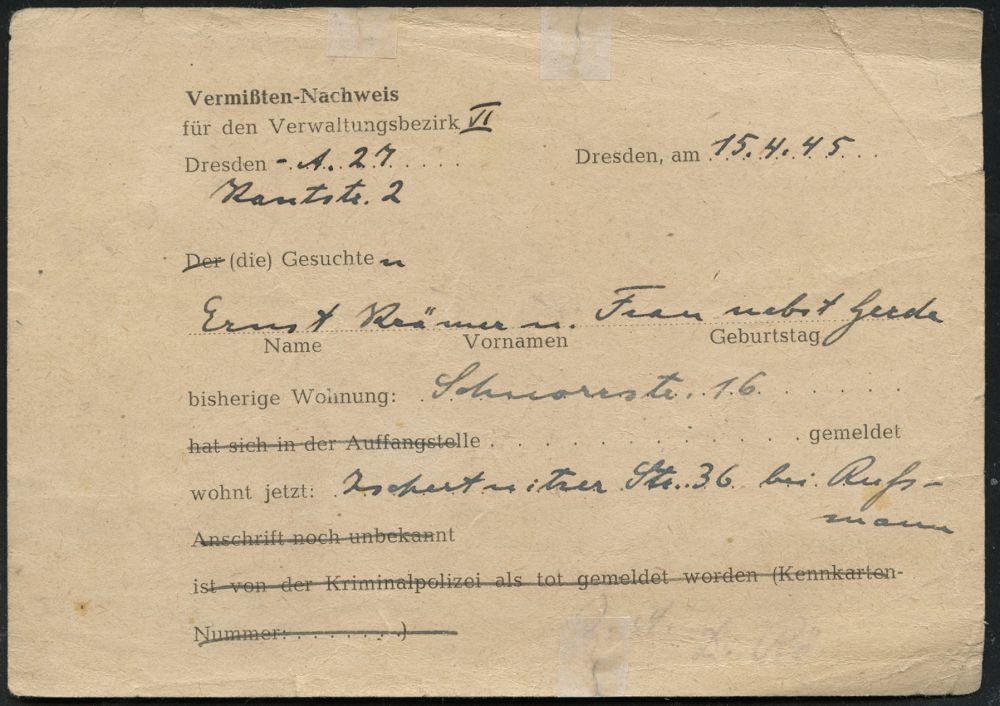 Vermißten-Nachweis
für den Verwaltungsbezirk VI
Dresden - A. 27 Dresden, am 15.4.45
Kantstr. 2
Der (die) Gesuchten
Ernst Krämer u. Frau nebst Gerda
Name Vornamen Geburtstag
bisherige Wohnung: Schnorrstr. 16
hat sich in der Auffangstelle . . . . . . . . . . . . gemeldet
wohnt jetzt: Zschertnitzer Str. 36 bei Ruß-
mann
Anschrift noch unbekannt
ist von der Kriminalpolizei als tot gemeldet worden (Kennkarten-
Nummer: . . . . . . .)